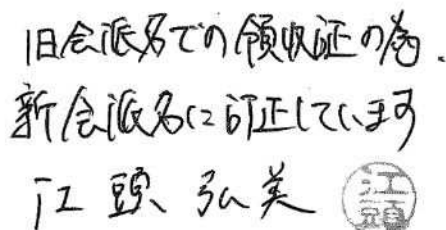 旧会派名での領収証の為、
新会派名に訂正しています
江頭 弘美
江頭